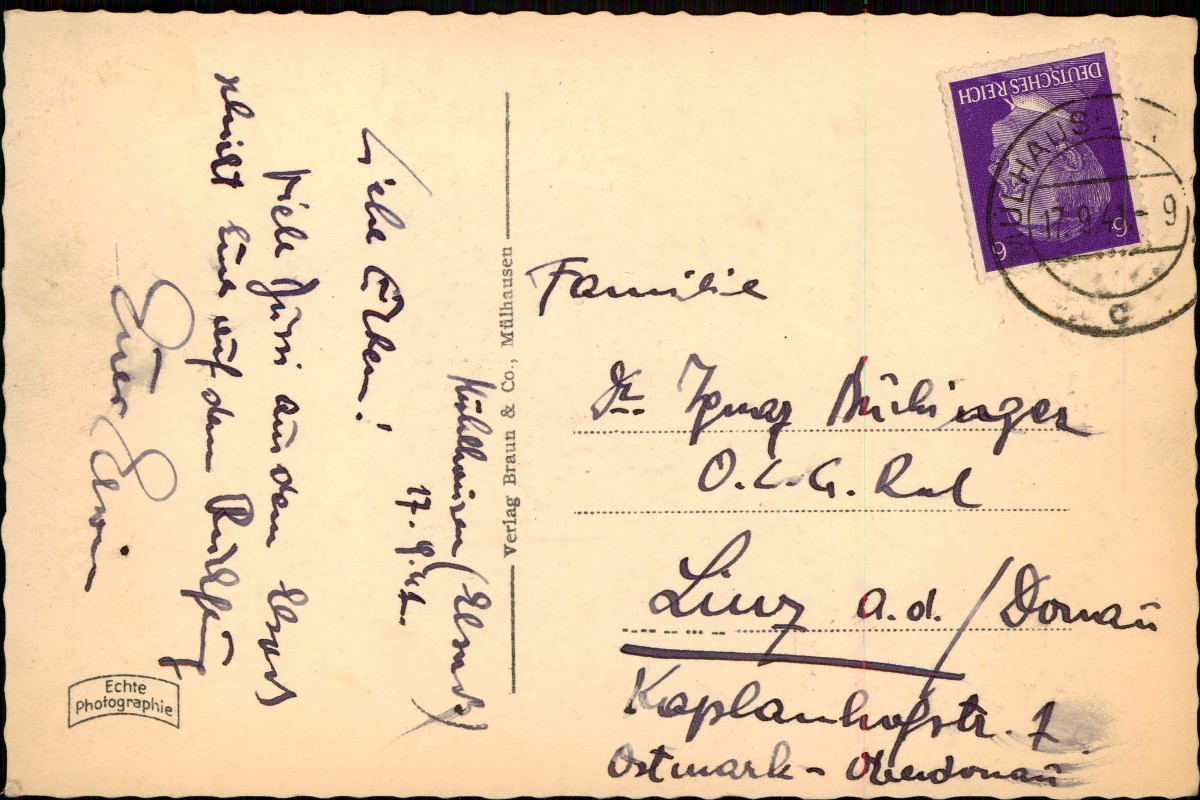 Mühlhausen (Elsass)
17.9.41.
Liebe Eltern!
Viele Grüsse aus dem Elsass
schickt Euch auf dem
Euer Erwin
Verlag Braun & Co., Mülhausen
Echte
Photographie
DEUTSCHES REICH
6 6
MÜLHAUS
17.9.41- 9
c
Familie
Dr. Ignaz
O.L.G. Rat
Linz a.d./Donau
Kaplanhofstr. 7
Ostmark - Oberdonau